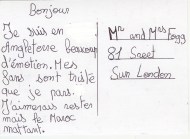 Bonjour
Je suis en
Angleterre beaucoup
d'émotion. Mes
fans sont triste
que je pars.
J'aimerais rester
mais le Maroc
m'attant.
Mr and Mrs Fogg
81 Sreet
Sun London